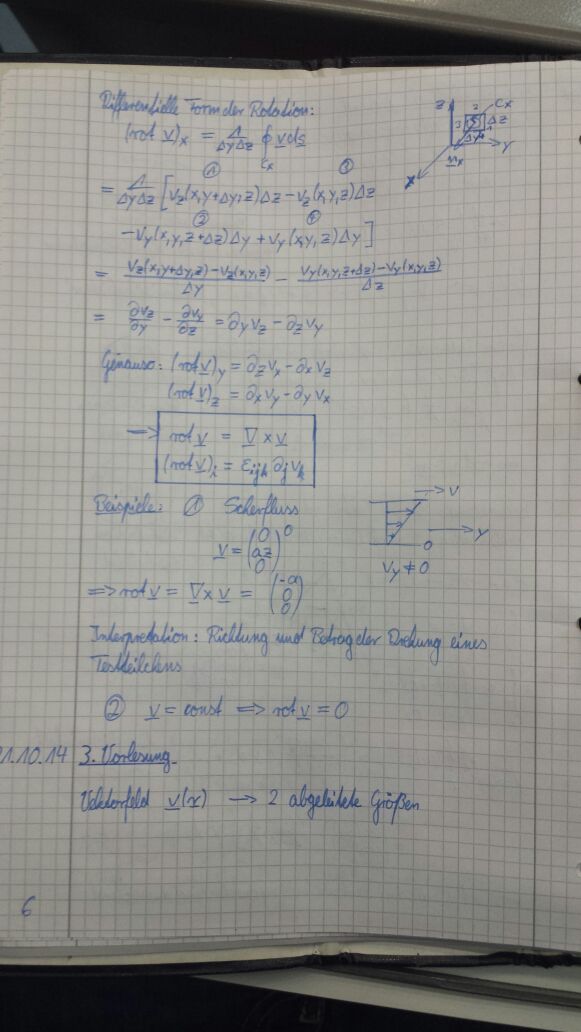 Differentielle Form der Rotation:
(rot v)ₓ = 1/ΔyΔz ∮ v ds
Cx
① ③
= 1/ΔyΔz [Vz(x,y+Δy,z)Δz − Vz(x,y,z)Δz
② ④
− Vy(x,y,z+Δz)Δy + Vy(x,y,z)Δy]
= Vz(x,y+Δy,z) − Vz(x,y,z)/Δy − Vy(x,y,z+Δz) − Vy(x,y,z)/Δz
= ∂vz/∂y − ∂vy/∂z = ∂yVz − ∂zVy
Genauso: (rot v)y = ∂zVx − ∂xVz
(rot v)z = ∂xVy − ∂yVx
⟹ rot v = ∇ × v
(rot v)i = εijk ∂j Vk
Beispiele: ① Scherfluss
v = (0 az 0)
⟹ rot v = ∇ × v = (-a 0 0)
Interpretation: Richtung und Betrag der Drehung eines
Testteilchens
② v = const ⟹ rot v = 0
21.10.14 3. Vorlesung
Vektorfeld v(x) → 2 abgeleitete Größen
6
z
2
Cx
3
Δz
Δy
y
nx
x
v
y
0
Vy ≠ 0